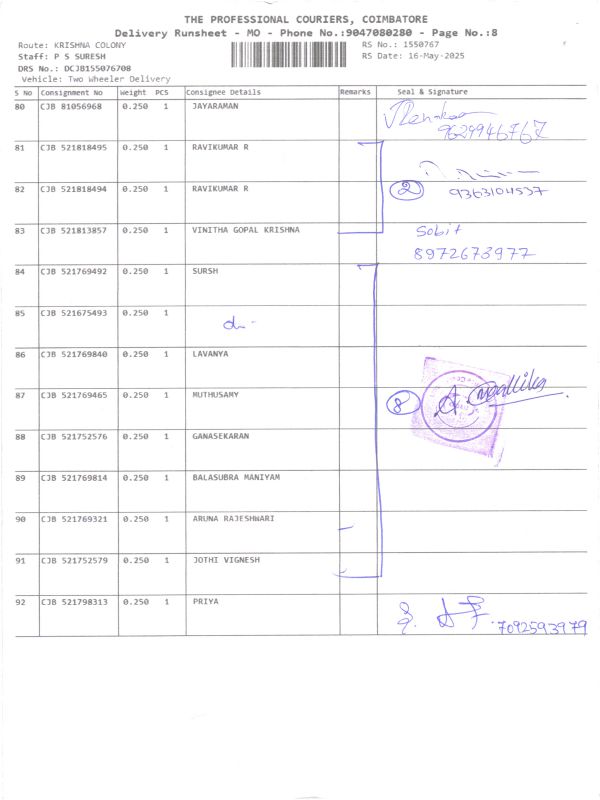 THE PROFESSIONAL COURIERS, COIMBATORE
Delivery Runsheet - MO - Phone No.:9047080280 - Page No.:8
Route: KRISHNA COLONY RS No.: 1550767
Staff: P S SURESH RS Date: 16-May-2025
DRS No.: DCJB155076708
Vehicle: Two Wheeler Delivery
S No Consignment No Weight PCS Consignee Details Remarks Seal & Signature
80 CJB 81056968 0.250 1 JAYARAMAN
9629946767
81 CJB 521818495 0.250 1 RAVIKUMAR R
82 CJB 521818494 0.250 1 RAVIKUMAR R 2 9363104537
83 CJB 521813857 0.250 1 VINITHA GOPAL KRISHNA Sobit
8972673977
84 CJB 521769492 0.250 1 SURSH
85 CJB 521675493 0.250 1
86 CJB 521769840 0.250 1 LAVANYA
87 CJB 521769465 0.250 1 MUTHUSAMY 8 A. Mallika
88 CJB 521752576 0.250 1 GANASEKARAN
89 CJB 521769814 0.250 1 BALASUBRA MANIYAM
90 CJB 521769321 0.250 1 ARUNA RAJESHWARI
91 CJB 521752579 0.250 1 JOTHI VIGNESH
92 CJB 521798313 0.250 1 PRIYA
7092593979